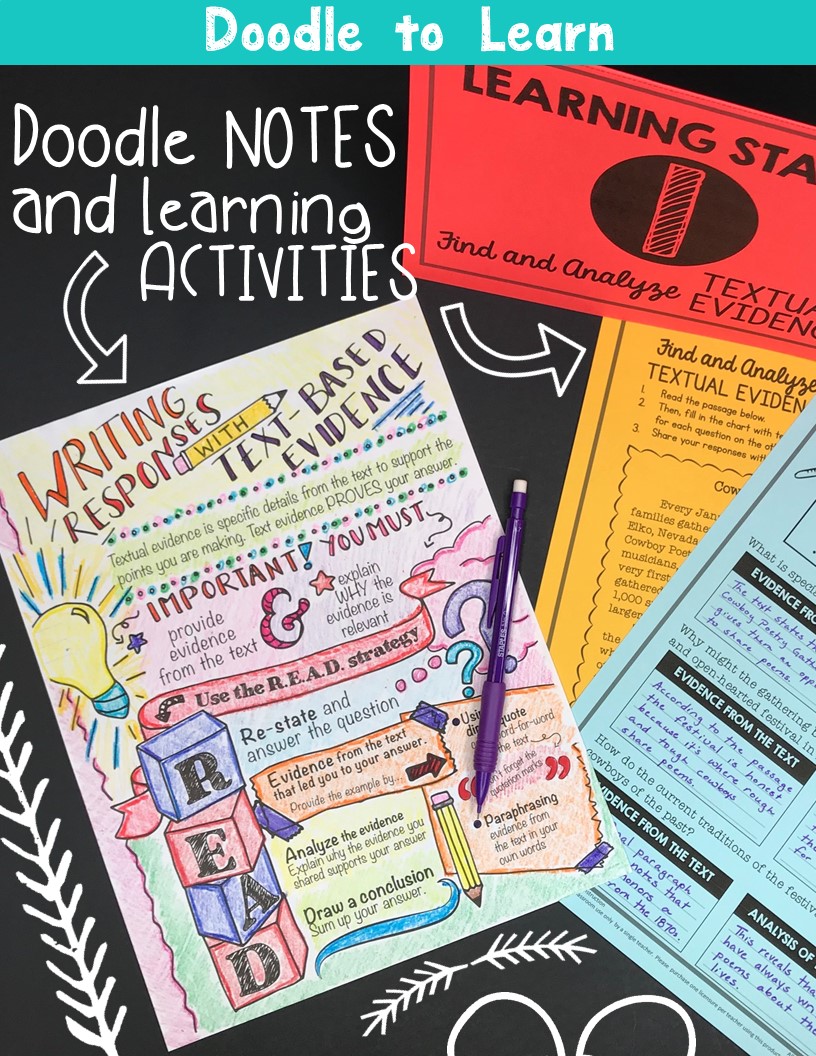 Doodle to Learn
Doodle NOTES
and learning
ACTIVITIES
LEARNING STA
1
Find and Analyze TEXTUA
EVIDENC
WRITING
RESPONSES
WITH
TEXT-BASED
EVIDENCE
Textual evidence is specific details from the text to support the
points you are making. Text evidence PROVES your answer.
IMPORTANT! YOU MUST
provide
evidence
from the text
&
explain
WHY the
evidence is
relevant
Use the R.E.A.D. strategy
R
E
A
D
Re-state and
answer the question
Evidence from the text
that led you to your answer.
Provide the example by...
quote
word-for-word
the text
forget the
quotation marks
Paraphrasing
evidence from
the text in your
own words
Analyze the evidence
Explain why the evidence you
shared supports your answer
Draw a conclusion
Sum up your answer.
Find and Analyze
TEXTUAL EVIDEN
1. Read the passage below.
2. Then, fill in the chart with te
for each question on the ot
3. Share your responses with
Cow
Every Jan
families gathe
Elko, Nevada
Cowboy Poe
musicians,
very first
gathered
1,000 s
larger
the
What is speci
EVIDENCE FRO
The text states th
Cowboy Poetry Gath
gives them an opp
to share poems.
Why might the gathering b
and open-hearted festival in
EVIDENCE FROM THE TEXT
According to the passage
the festival is honest
because it's where rough
and tough cowboys
share poems.
How do the current traditions of the festiva
cowboys of the past?
VIDENCE FROM THE TEXT
paragraph
notes that
honors a
from the 1870s.
ANALYSIS OF
This reveals th
have always wri
poems about the
lives.
classroom use only by a single teacher. Please purchase one licensure per teacher using this produ